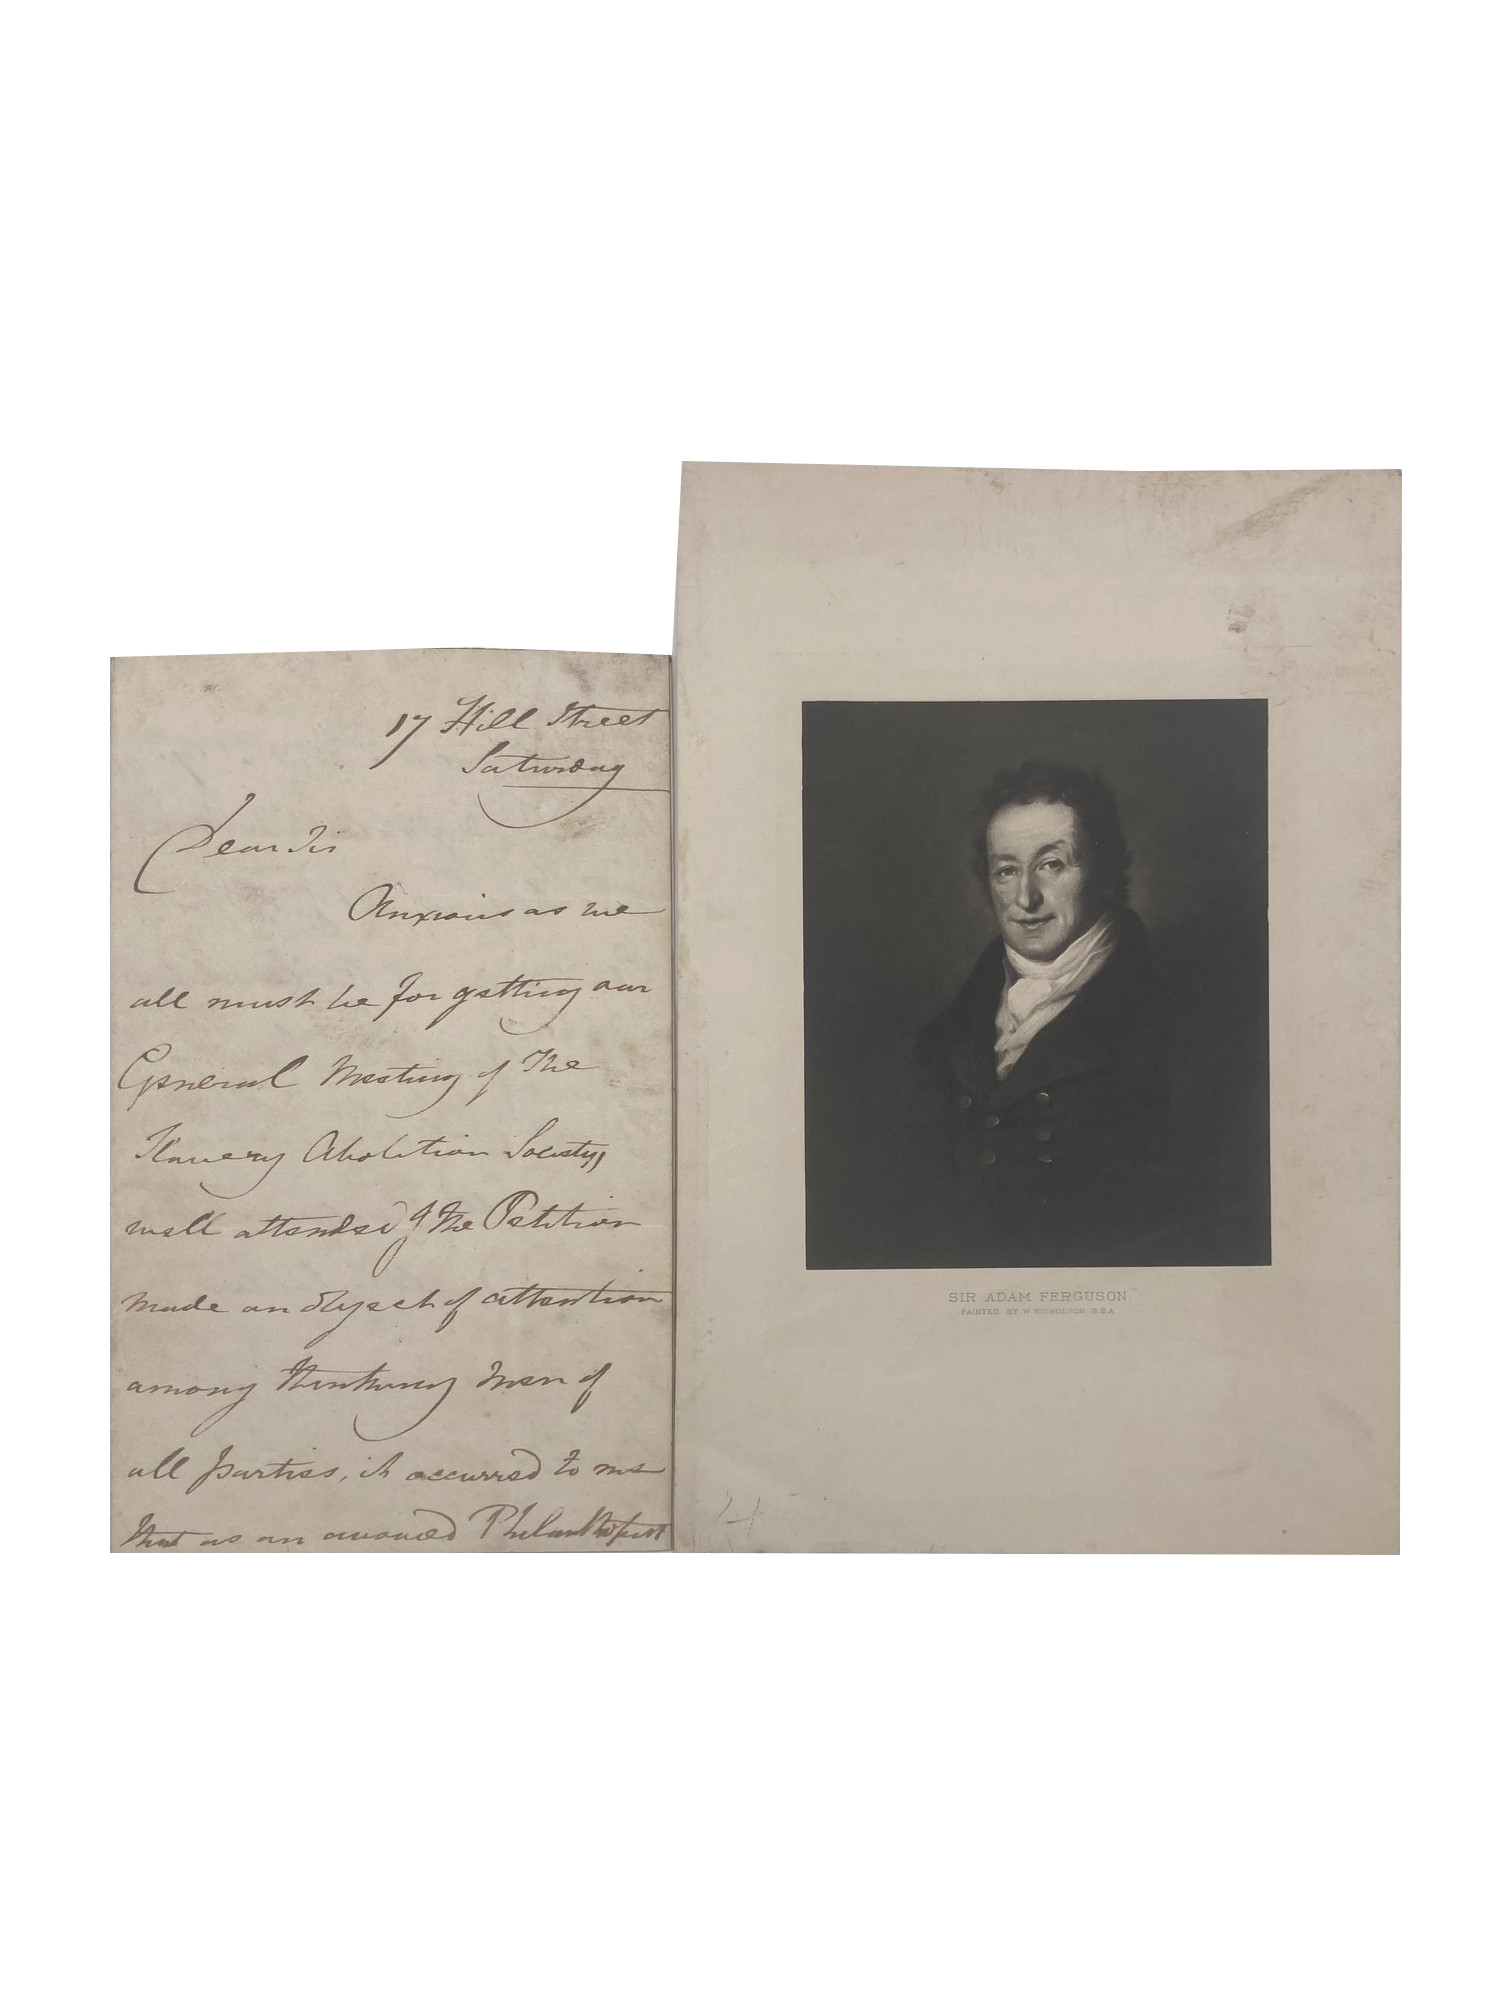 17 Hill Street
Saturday
Dear Sir
Anxious as we
all must be for getting our
General Meeting of The
Slavery Abolition Society,
well attended & the Petition
made an Object of attention
among thinking Men of
all parties, it occurred to me
that as an avowed Philanthropist
SIR ADAM FERGUSON.
PAINTED BY W. NICHOLSON R.S.A.